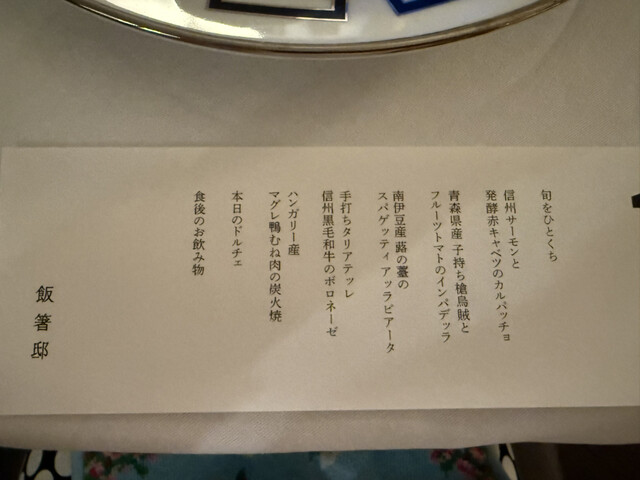 旬をひとくち
信州サーモンと
発酵赤キャベツのカルパッチョ
青森県産 子持ち槍烏賊と
フルーツトマトのインパデッラ
南伊豆産 蕗の薹の
スパゲッティ アッラビアータ
手打ちタリアテッレ
信州黒毛和牛のボロネーゼ
ハンガリー産
マグレ鴨むね肉の炭火焼
本日のドルチェ
食後のお飲み物
飯箸邸